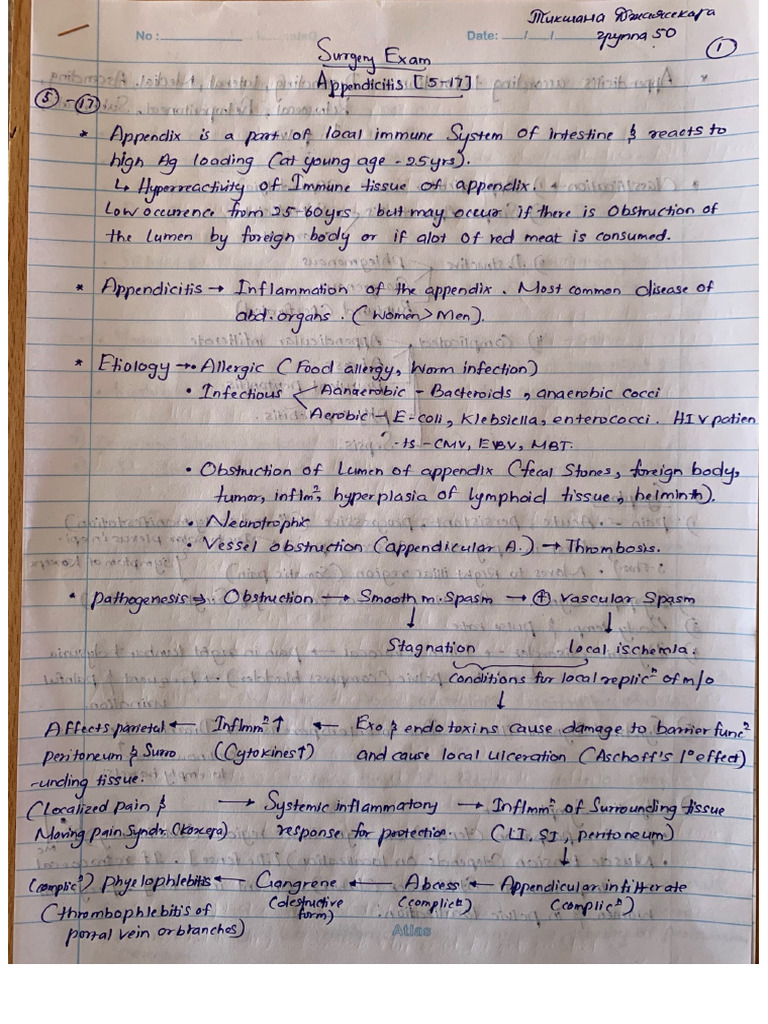 Тикшана Джаясекара
No : Date: / /
группа 50
Surgery Exam
1
Appendicitis [5-17]
5 - 17
* Appendix is a part of local immune System of intestine & reacts to
high Ag loading (at young age - 25yrs).
↳ Hyperreactivity of Immune tissue of appendix.
Low occurence from 25-60yrs, but may occur if there is Obstruction of
the lumen by foreign body or if alot of red meat is consumed.
* Appendicitis → Inflammation of the appendix. Most common disease of
abd. organs. (Women > Men).
* Etiology → • Allergic (Food allergy, Worm infection)
• Infectious Aanaerobic - Bacteroids, anaerobic cocci
Aerobic - E-coli, Klebsiella, enterococci. HIV patien
-ts - CMV, EBV, MBT.
• Obstruction of Lumen of appendix (fecal Stones, foreign body,
tumor, inflmⁿ, hyperplasia of lymphoid tissue, helminth).
• Neurotrophic
• Vessel obstruction (appendicular A.) → Thrombosis.
• pathogenesis ⇒ Obstruction → Smooth m. Spasm → ⊕ vascular Spasm
↓ ↓
Stagnation local ischemia.
Conditions for local replicⁿ of m/o
↓
Affects parietal ← Inflmmⁿ ↑ ← Exo & endotoxins cause damage to barrier funcⁿ
peritoneum & Surro (Cytokines↑) and cause local ulceration (Aschoff's 1° effect)
-unding tissue.
(Localized pain & → Systemic inflammatory → Inflmmⁿ of Surrounding tissue
Moving pain Syndr. (Kocher) response for protection. (LI, SI, peritoneum)
↓
(complicⁿ) phyelophlebitis ← Gangrene ← Abcess ← Appendicular infilterate
(thrombophlebitis of (destructive form) (complicⁿ) (complicⁿ)
portal vein or branches)
Atlas